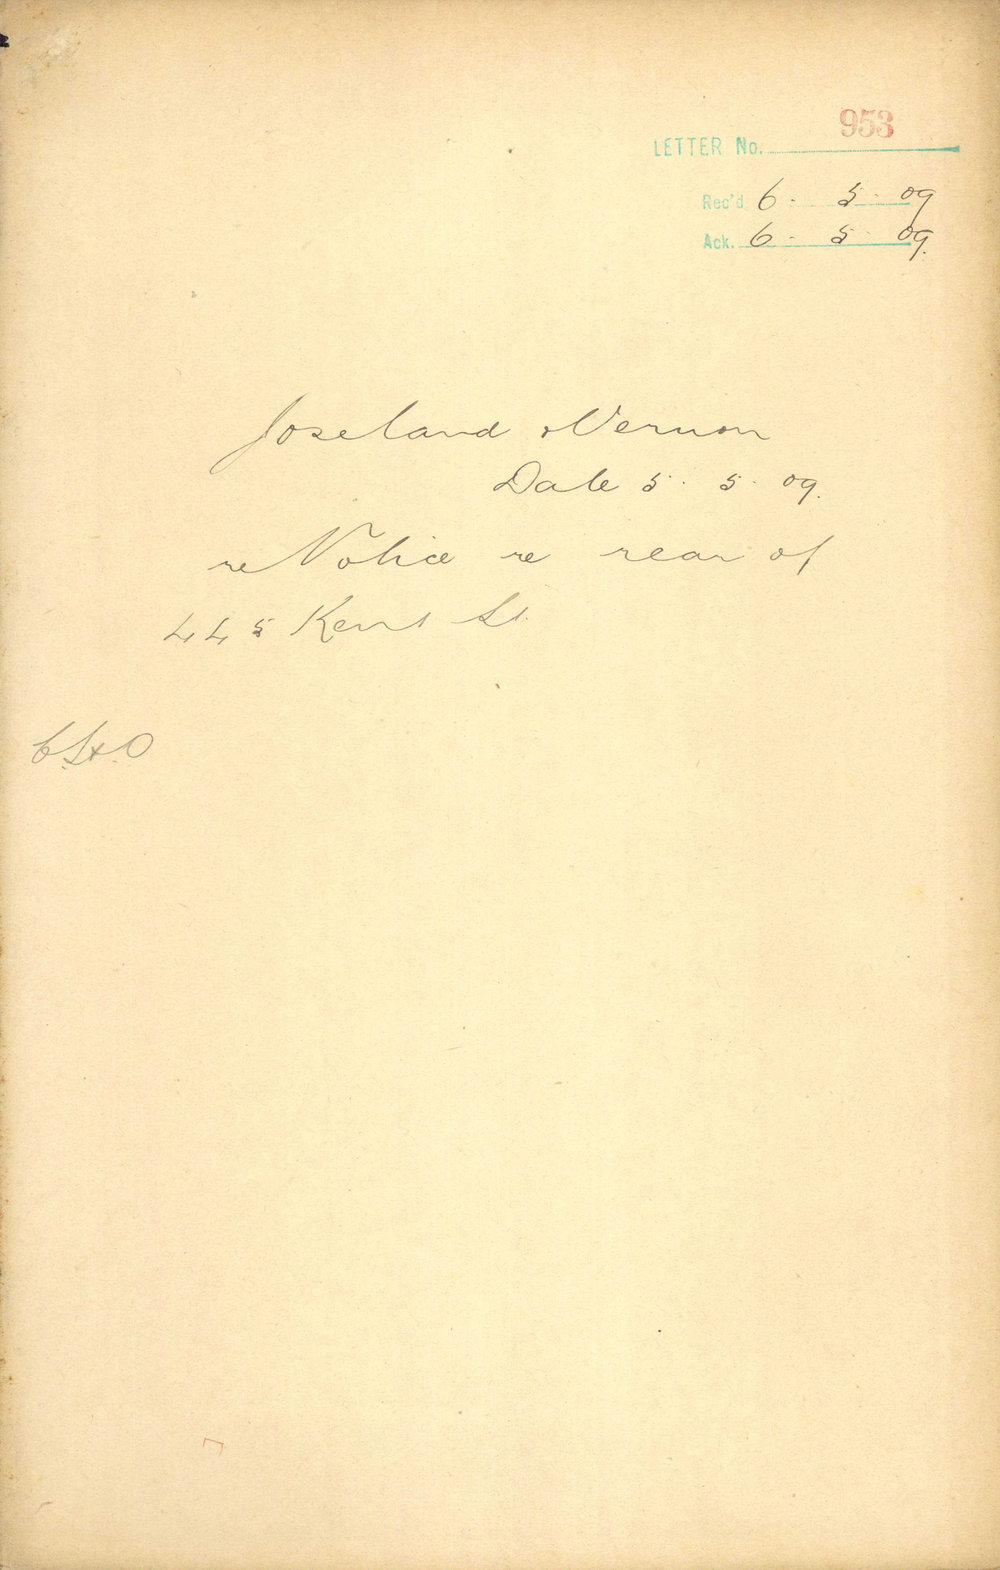 LETTER No. 953
Rec'd 6 - 5 - 09
Ack. 6 - 5 - 09.
Joseland & Vernon
Date 5 - 5 - 09.
re Notice re rear of
445 Kent St.